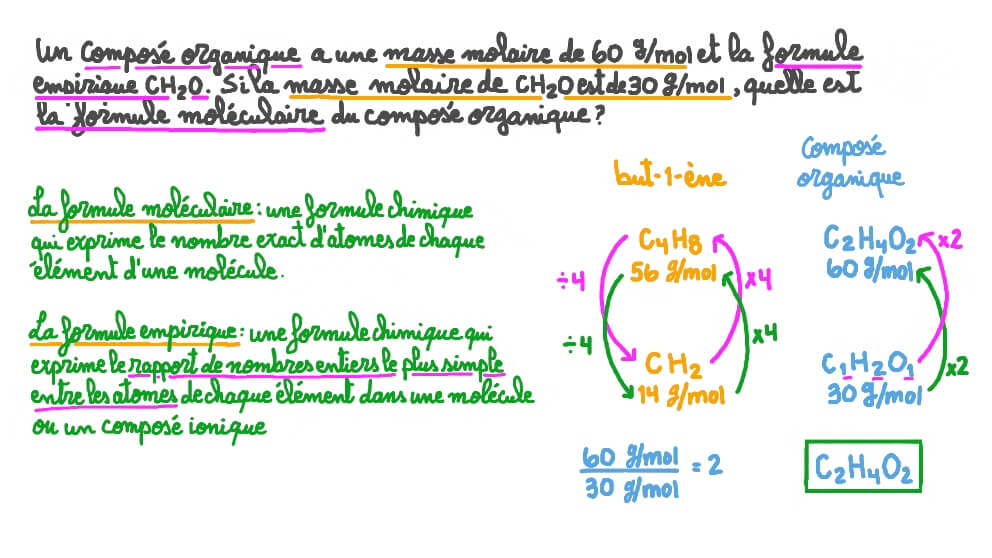 Un composé organique a une masse molaire de 60 g/mol et la formule
empirique CH₂O. Si la masse molaire de CH₂O est de 30 g/mol, quelle est
la formule moléculaire du composé organique ?
La formule moléculaire : une formule chimique
qui exprime le nombre exact d'atomes de chaque
élément d'une molécule.
La formule empirique : une formule chimique qui
exprime le rapport de nombres entiers le plus simple
entre les atomes de chaque élément dans une molécule
ou un composé ionique
but-1-ène
C₄H₈
56 g/mol
÷4
x4
÷4
x4
CH₂
14 g/mol
60 g/mol
30 g/mol
= 2
Composé
organique
C₂H₄O₂
x2
60 g/mol
C₁H₂O₁
x2
30 g/mol
C₂H₄O₂